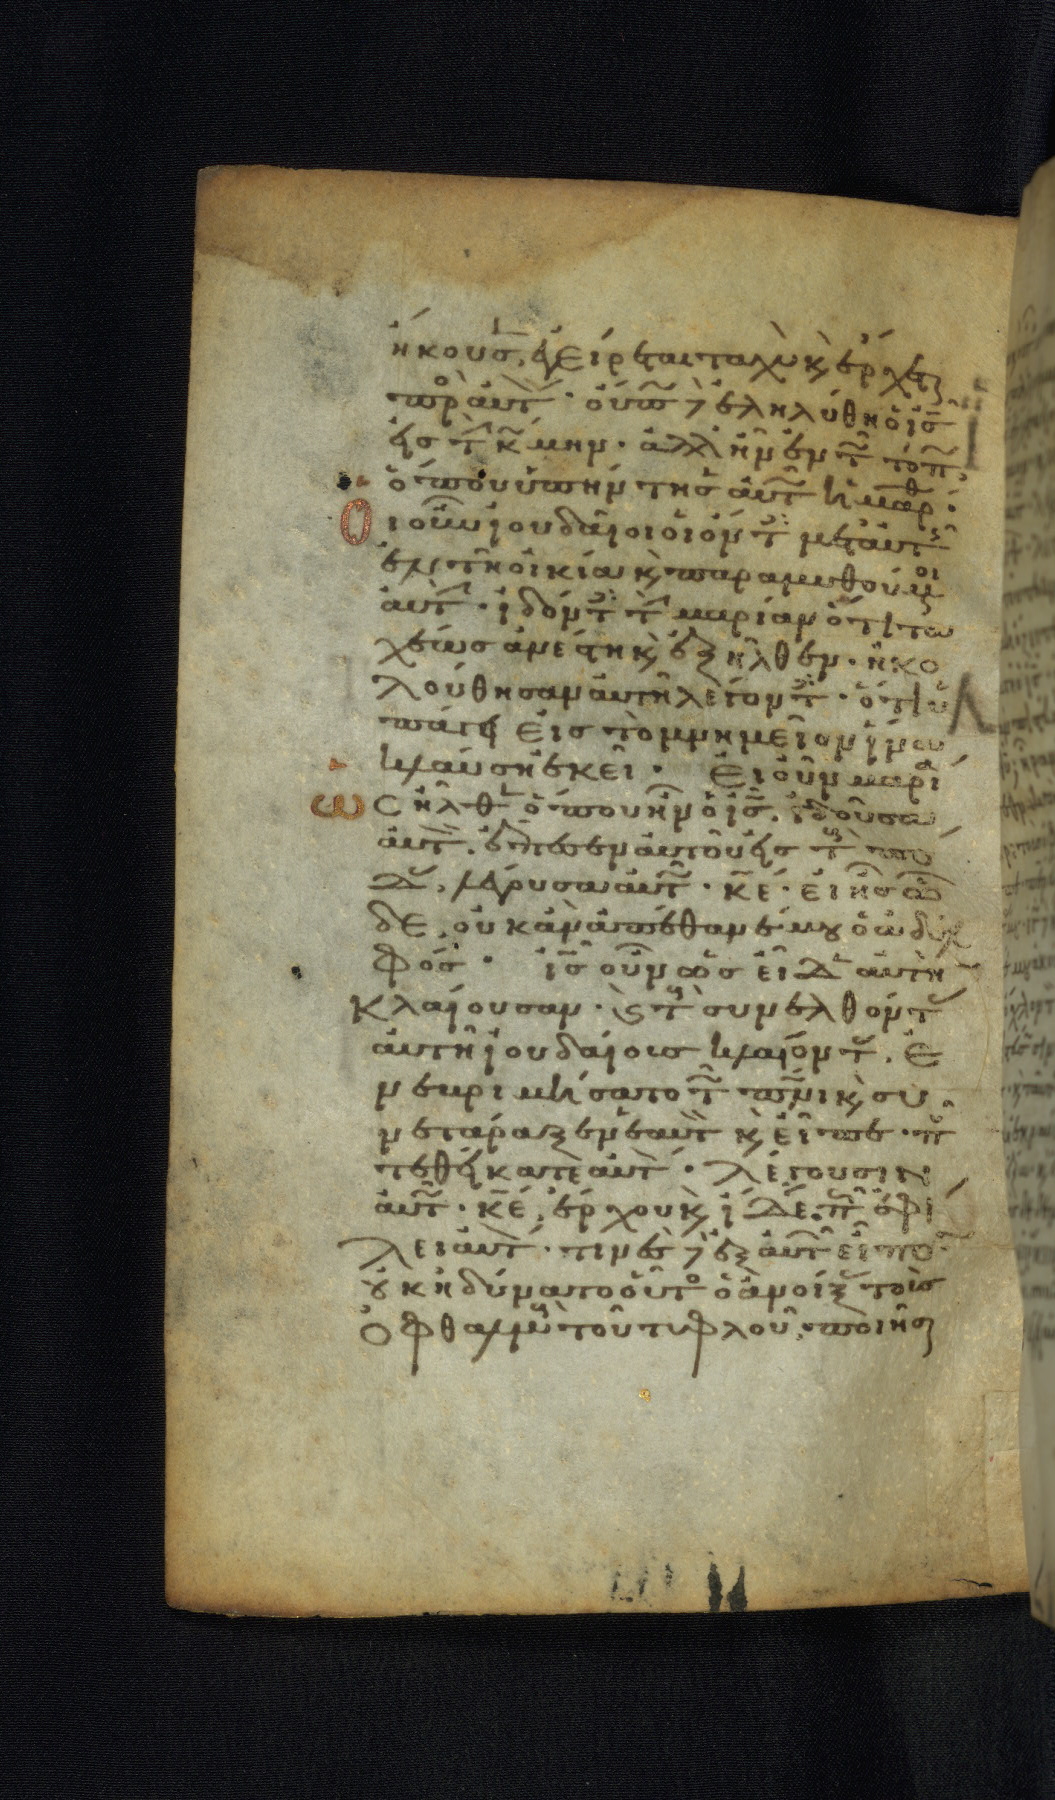 ἤκουσ, ἐγείρεται ταχὺ κ, ἔρχετ
πρὸσ αὐτ· οὔπω δὲ ἐληλύθει ὁ ἰσ
εἰσ τ κώμην· ἀλλ ἦν ἐν τ τόπ,
ὅπου ὑπήντησ αὐτ ἡ μαρθ·
Οἱ οὖν ἰουδαῖοι οἱ ὄντ μετ αὐτ
ἐν τῇ οἰκία κ, παραμυθούμ
αὐτ· ἰδόντ τ μαρίαν ὅτι τα
χέωσ ἀνέστη κ, ἐξῆλθεν· ἠκο
λούθησαν αὐτῇ λέγοντ· ὅτι ὑ
πάγει εἰσ τὸ μνημεῖον ἵνα
κλαύσῃ ἐκεῖ· Ἡ οὖν μαρί
ωσ ἦλθ ὅπου ἦν ὁ ἰσ. ἰδοῦσα
αὐτ. ἔπεσεν αὐτοῦ εἰσ τ πό
δ, λέγουσα αὐτ· κε· εἰ ἦσ ὧ
δε, οὐκ ἂν ἀπέθανέ μου ὁ ἀδελ
φόσ· ἰσ οὖν ὡσ εἶδ αὐτὴ
κλαίουσαν· κ, τ συνελθόντ
αὐτῇ ἰουδαίουσ κλαίοντ. ἐ
νεβριμήσατο τ πνι κ, συ
νετάραξεν ἑαυτ κ, εἶπε· π
τεθείκατε αὐτ· λέγουσιν
αὐτ· κε, ἔρχου κ, ἴδε. π ἐφί
λει αὐτ· τινὲσ δὲ ἐξ αὐτ εἶπο
οὐκ ἠδύνατο οὗτοσ ὁ ἀνοίξ τοὺσ
ὀφθαλμοὺσ τοῦ τυφλοῦ, ποιῆσ